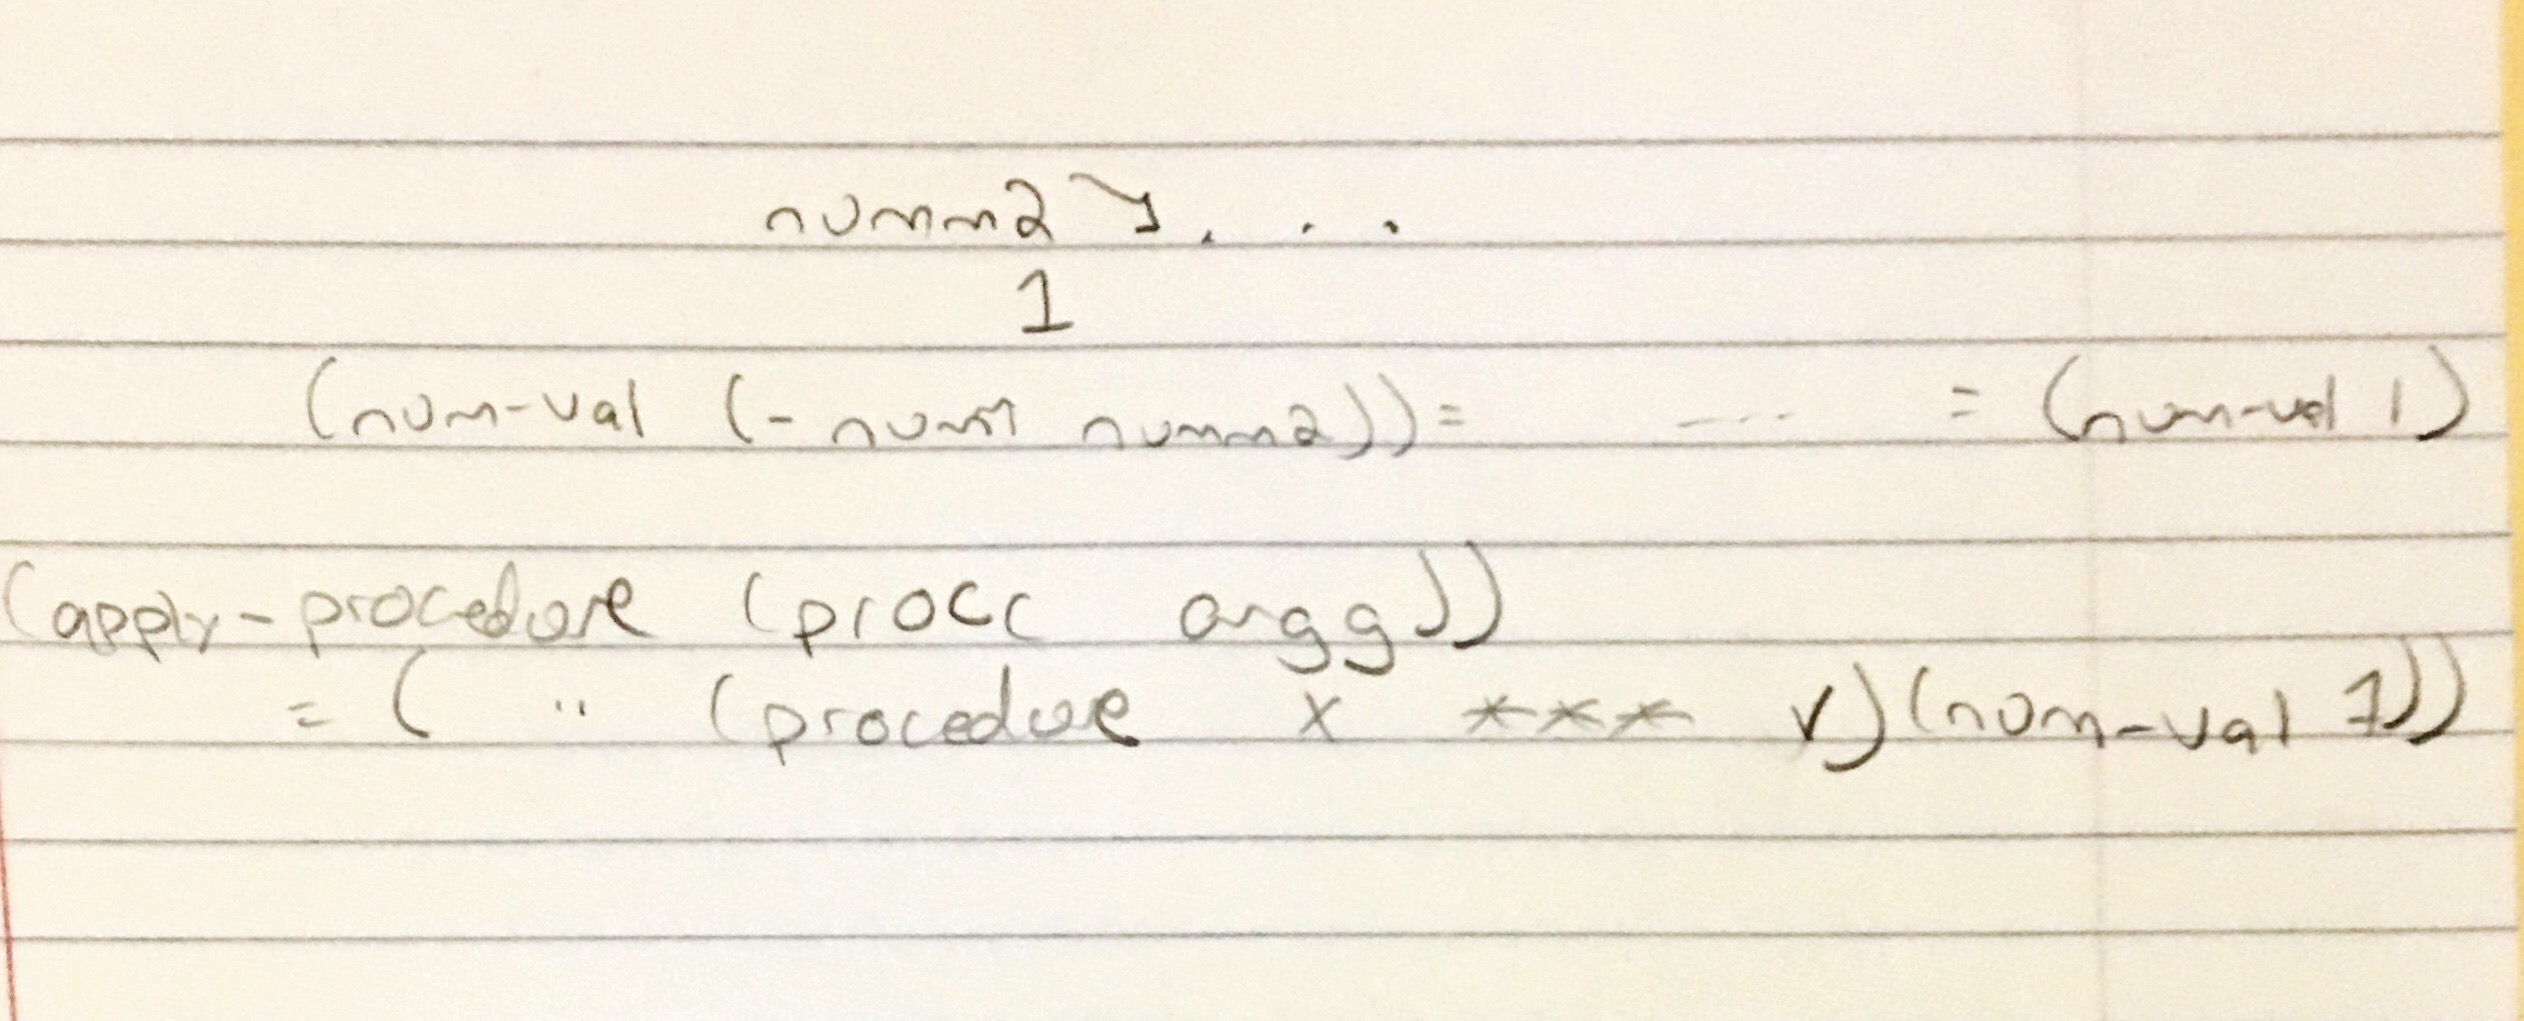 numm2 ↘ . . .
1
(num-val (- num1 numm2)) = ---- = (num-val 1)
(apply-procedure (procc argg))
= ( " (procedure x *** v) (num-val 1))